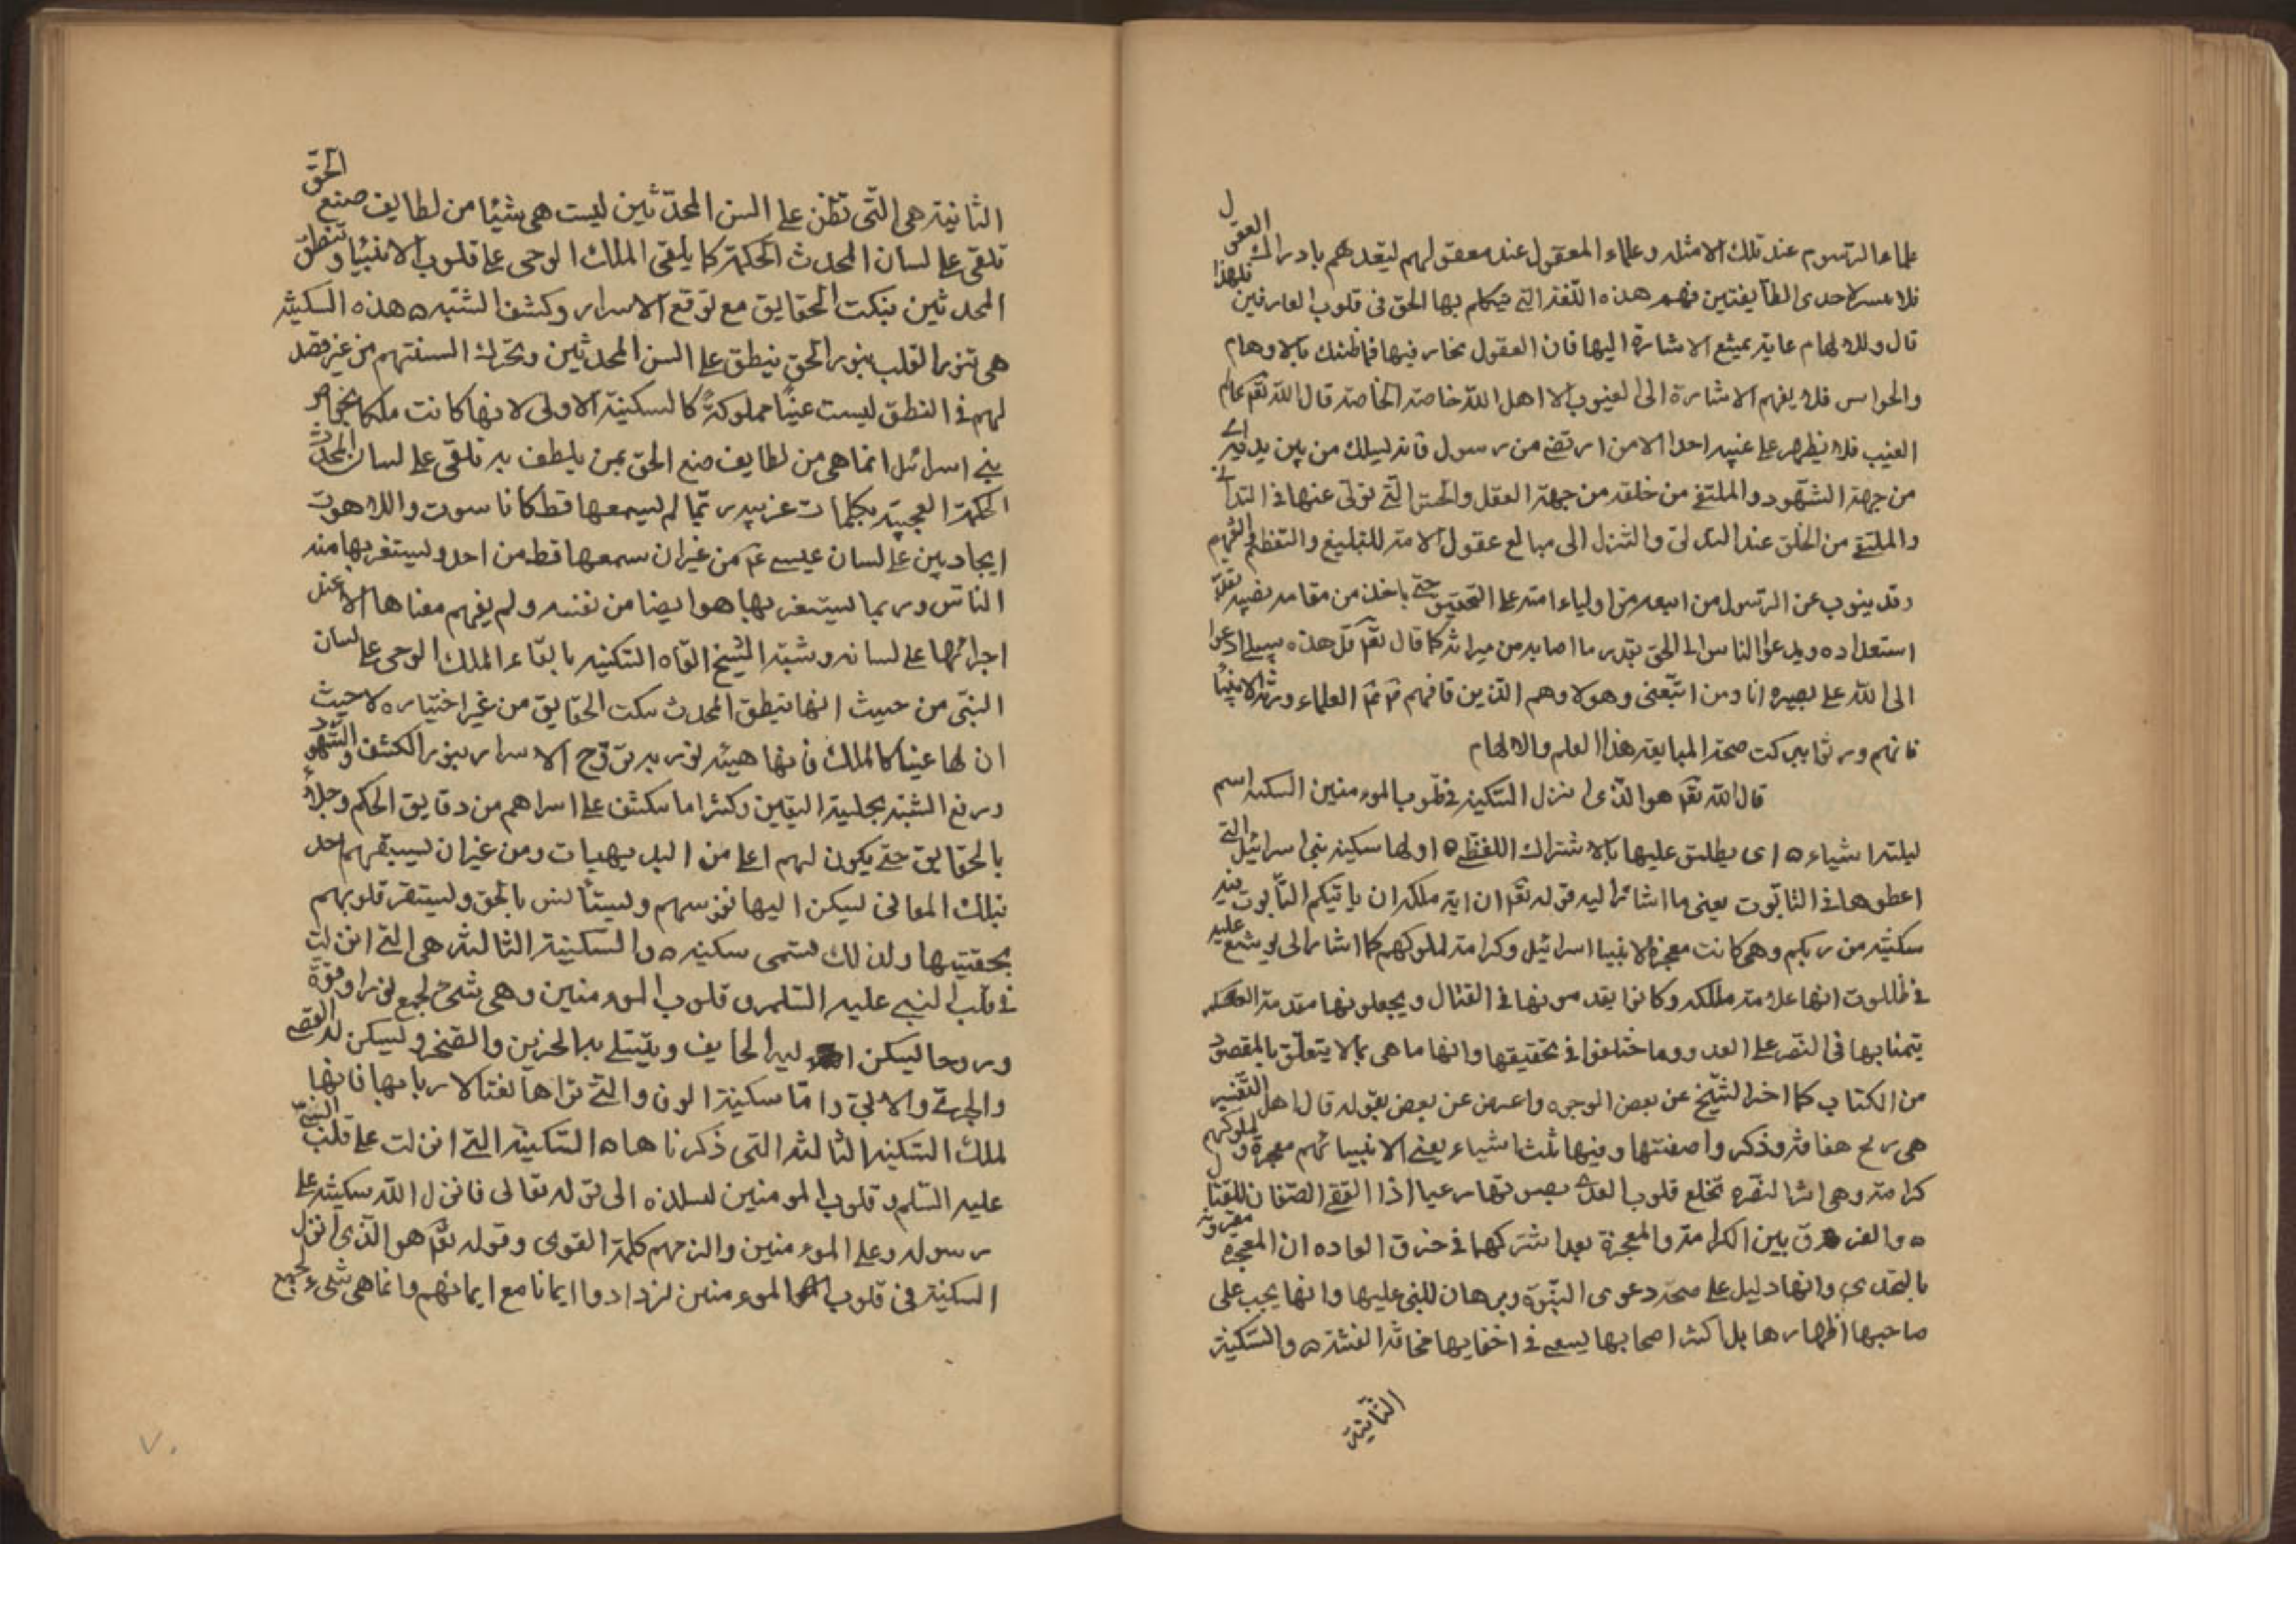 علماء الرسوم عند تلك الامثله وعلماء المعقول عند معقولهم ليقدهم بادراك العقول
فلا احدى الطايفتين فهم هذه اللغة التي يتكلم بها الحق في قلوب العارفين فلهذا
قال وللالهام غاية يمتنع الاشارة اليها فان العقول تحار فيها فما ظنك بالاوهام
والحواس فلا يفهم الاشارة الى الغيوب الا اهل الله خاصة الخاصة قال الله تعم عالم
الغيب فلا يظهر على غيبه احدا الا من ارتضى من رسول فانه ليسلك من بين يديه اى
من جهة الشهود والملتقى من خلفه من جهة العقل والحس التى تولى عنها فى التدلى
والملتقى من الخلق عند التدلى والتنزل الى مبالغ عقول الامة للتبليغ والتفهيم
وقد ينوب عن الرسول من اتبعه من اولياء امته على التحقيق حتى ياخذ من مقامه نصيبه بقدر
استعداده ويدعو الناس الى الحق بقدر ما اصابه من ميراثه كما قال تعم قل هذه سبيلى ادعوا
الى الله على بصيرة انا ومن اتبعنى وهولاء هم الذين قال فيهم العلماء ورثة الانبيا
فانهم ورثوا ببركت صحة المبايعة هذا العلم والالهام
قال الله تعم هو الذى انزل السكينة فى قلوب المومنين السكينة اسم
لثلثة اشياء ه اى يطلق عليها بالاشتراك اللفظى ه اولها سكينة بنى اسرائيل التى
اعطوها فى التابوت يعنى ما اشار اليه قوله تعم ان اية ملكه ان ياتيكم التابوت فيه
سكينة من ربكم وهى كانت معجزة لانبيا اسرائيل وكرامة لملوكهم كما اشار الى يوشع عليه
فى طالوت انها علامة ملكه وكانوا يقدمونها فى القتال ويجعلونها مقدمة
يتمنا بها فى النصر على العدو وما ختلفوا فى تحقيقها وانها ما هى بما لا يتعلق بالمقصود
من الكتاب كما اخذ الشيخ عن بعض الوجوه واعرض عن بعض بقوله قال اهل التفسير
هى ريح هفافة وذكروا صفتها وفيها ثلث اشياء يعنى الانبيائهم معجزة ولملوكهم
كرامة وهى اية النصرة تخلع قلوب العدو بصوتها رعبا اذا التقى الصفان للقتال
ه والفرق بين الكرامة والمعجزة بعد اشتركهما فى خرق العاده ان المعجزة مقرونة
بالتحدى وانها دليل على صحة دعوى النبوة وبرهان للنبى عليها وانها يجب على
صاحبها اظهارها بل اكثر اصحابها يسعى فى اخفايها مخافة الفتنة ه والسكينة
الثانية
الثانية هى التى تنطق على السن المحدثين ليست هى شيئا من لطايف صنع الحق
تلقى على لسان المحدث الحكمة كما يلقى الملك الوحى على قلوب الانبيا وتنطق
المحدثين بنكت الحقايق مع توقع الاسرار وكشف الشبه ه هذه السكينة
هى تنور القلب بنور الحق ينطق على السن المحدثين وتحرك السنتهم من غير قصد
لهم فى النطق ليست عينا مملوكة كالسكينة الاولى لانها كانت ملكا
بنى اسرائل انما هى من لطايف صنع الحق بمن يلطف به تلقى على لسان المحدث
الحكمة العجيبة بكلمات غريبه ربما لم يسمعها قط كاناسوت واللاهوت
ايجادبين على لسان عيسى عم من غير ان سمعها قط من احد وليستغربها منه
الناس وربما ليستغربها هو ايضا من نفسه ولم يفهم معناها الا عند
اجرائها على لسانه وشبه الشيخ القاه السكينه بالقاء الملك الوحى على لسان
النبى من حيث انها ينطق المحدث بنكت الحقايق من غير اختياره لا حيث
ان لها عينا كالملك فانها هيئه نوريه تروح الاسرار بنور الكشف والشهود
ورفع الشبه بجلية اليقين وكثرا ما يكشف على اسراهم من دقايق الحكم وجلاء
بالحقايق حتى يكون لهم اعلى من البديهيات ومن غير ان يسبقهم احد
بتلك المعانى ليسكن اليها نفوسهم وليستانس بالحق وليستقر قلوبهم
بحقيتها ولذلك تسمى سكينه ه والسكينة الثالثه هى التى انزلت
فى قلب النبى عليه السلم وفى قلوب المومنين وهى شئ لجمع نورا وقوة
وروحا ليسكن اليه الخايف ويتسلى به الحزين والضجر وليسكن له العصى
والجرئ والابى واما سكينة الوقار التى نزاها نعتا لاربابها فانها
لملك السكينه الثالثه التى ذكرناها ه السكينه التى انزلت على قلب النبى
عليه السلم وقلوب المومنين لسلده الى قوله تعالى فانزل الله سكينته على
رسوله وعلى المومنين والزمهم كلمة التقوى وقوله تعم هو الذى انزل
السكينة فى قلوب المومنين ليزدادوا ايمانا مع ايمانهم وانما هى شئ لجمع
٧٠